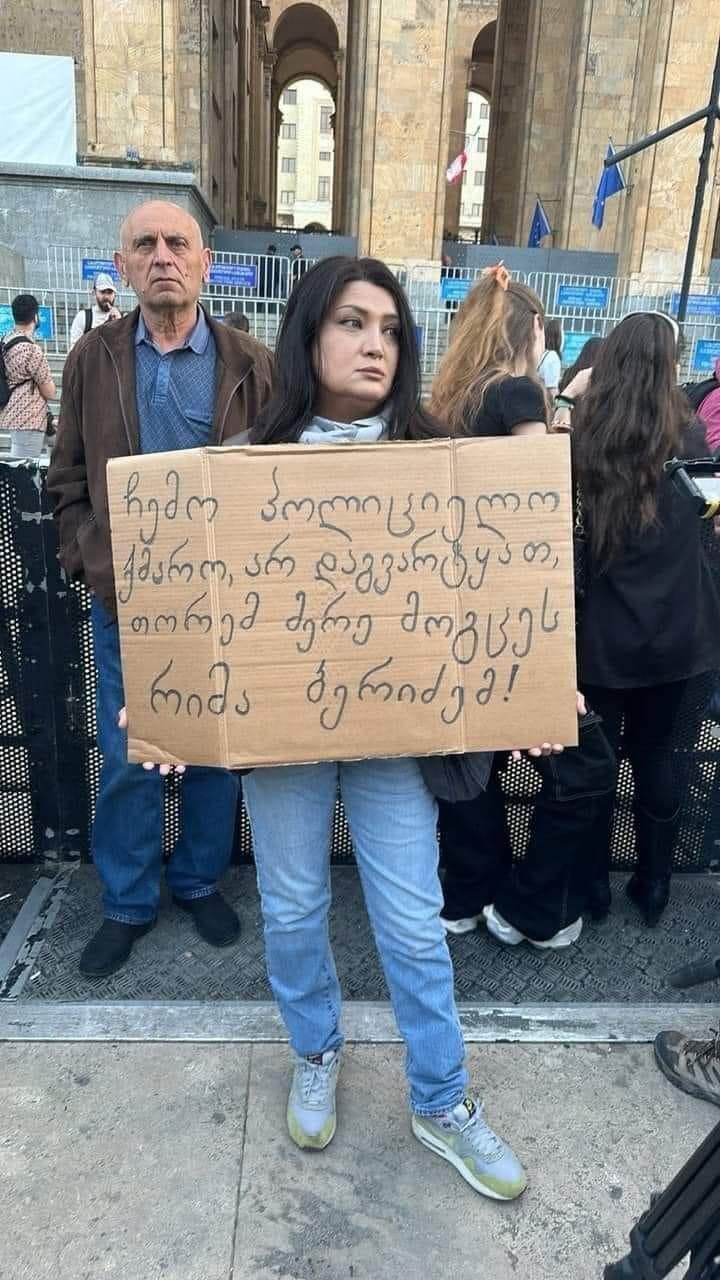 ჩემო პოლიციელო
ქმარო, არ დაგვარტყათ,
თორემ მერე მოგცეს
რიმა ბერიძემ!